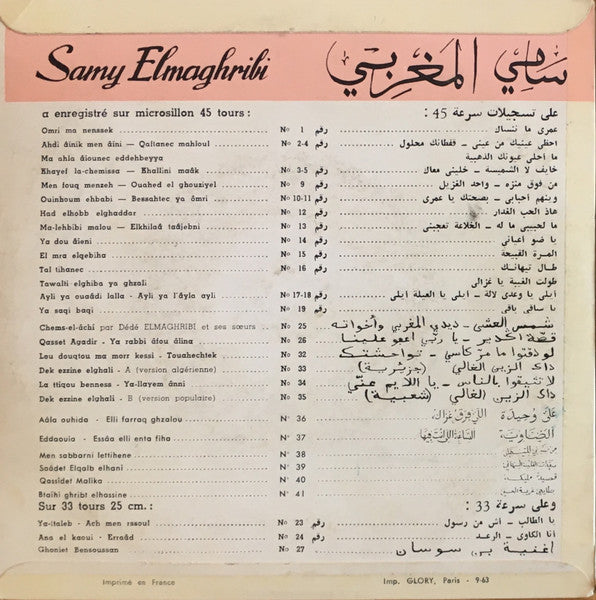 Samy Elmaghribi سامي المغربي
a enregistré sur microsillon 45 tours : على تسجيلات سرعة 45 :
Omri ma nenssek No 1 رقم عمرى ما ننساك
Ahdi âinik men âini — Qaftanec mahloul No 2-4 رقم احظى عينيك من عينى — قفطانك محلول
Ma ahla âiounec eddehbeyya ما أحلى عيونك الذهبية
Khayef la-chemissa — Khallini maâk No 3-5 رقم خايف لا الشميسة — خلينى معاك
Men fouq menzeh — Ouahed el ghouziyel No 9 رقم من فوق منزه — واحد الغزيل
Ouinhoum ehbabi — Bessahtec ya ômri No 10-11 رقم وينهم أحبابى — بصحتك يا عمرى
Had elhobb elghaddar No 12 رقم هاذ الحب الغدار
Ma-lehbibi malou — Elkhilaâ taâjebni No 13 رقم ما لحبيبى ما له — الخلاعة تعجبنى
Ya dou âieni No 14 رقم يا ضو اعيانى
El mra elqebiha No 15 رقم المرة القبيحة
Tal tihanec No 16 رقم طال تيهانك
Tawalti elghiba ya ghzali طولت الغيبة يا غزالى
Ayli ya ouaâdi lalla - Ayli ya l'âyla ayli No 17-18 رقم أيلى يا وعدى لالة — ايلى يا العيلة أيلى
Ya saqi baqi No 19 رقم يا ساقى باقى
Chems-el-âchi par Dédé ELMAGHRIBI et ses sœurs No 25 شمس العشي - ديدي المغربي وأخواته
Qasset Agadir - Ya rabbi âfou âlina No 26 قصة أكدير - يا ربي اعفو علينا
Lou douqtou ma morr kessi - Touahechtek No 32 لو ذقتوا ما مر كاسي - تواحشتك
Dek ezzine elghali - A (version algérienne) No 33 داك الزين الغالي (جزيرية)
La tiqou benness - Ya-llayem ânni No 34 لا تثيقوا بالناس - يا اللايم عني
Dek ezzine elghali - B (version populaire) No 35 داك الزين الغالي (شعبية)
Aâla ouhida - Elli farraq ghzalou N° 36 على وحيدة - اللي فرق غزاله
Eddaouia - Essâa elli enta fiha N° 37 الضاوية - الساعة اللي انت فيها
Men sabbarni lettihene N° 38
Saâdet Elqalb elhani N° 39
Qassidet Malika N° 40 قصيدة مليكة
Btaihi ghribt elhassine N° 41
Sur 33 tours 25 cm : وعلى سرعة 33 :
Ya-ttaleb - Ach men rssoul No 23 رقم يا الطالب — اش من رسول
Ana el kaoui - Erraâd No 24 رقم أنا الكاوى — الرعد
Ghoniet Bensoussan No 27 أغنية بن سوسان
Imprimé en France Imp. GLORY, Paris - 9-63